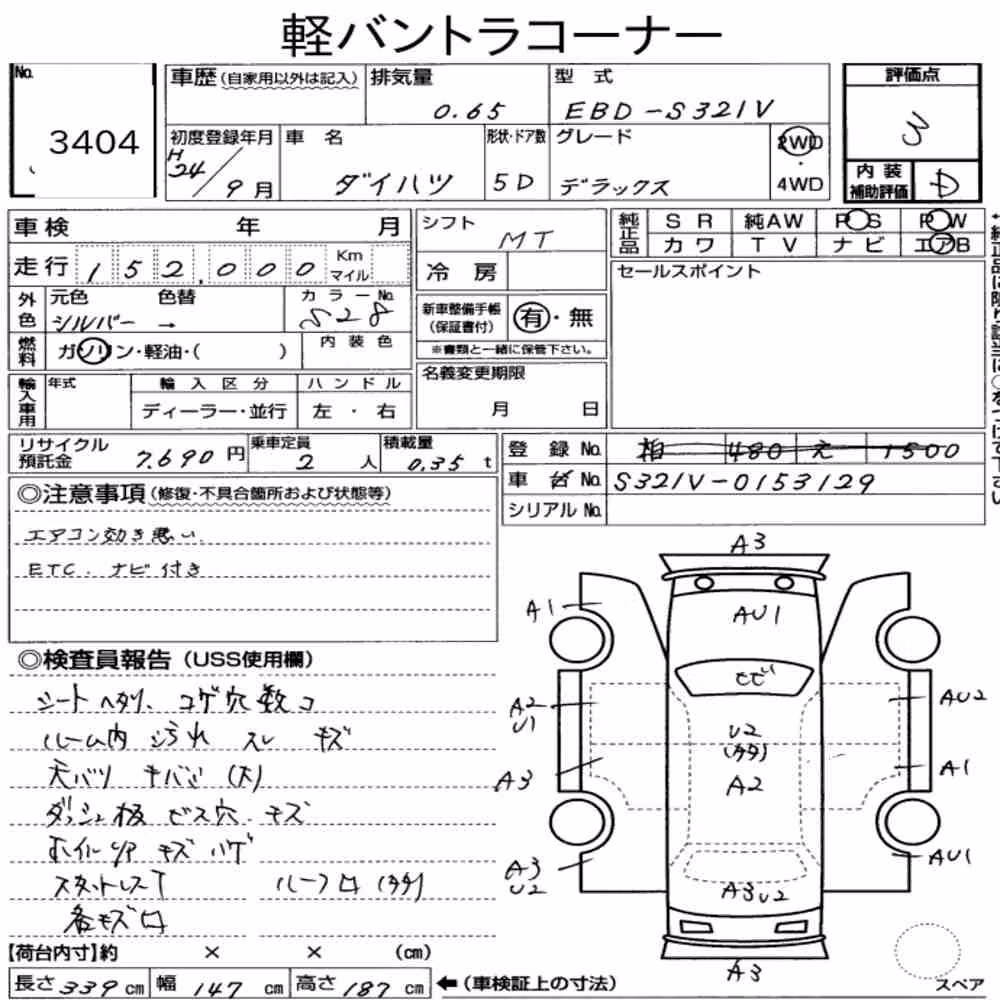 軽バントラコーナー
No.
3404
車歴 (自家用以外は記入)
排気量
0.65
型 式
EBD-S321V
評価点
3
初度登録年月
H24/9月
車 名
ダイハツ
形状・ドア数
5D
グレード
デラックス
2WD
・
4WD
内装
補助評価
D
車検 年 月
走行 152,000 Km
マイル
シフト
MT
冷房
純正品
SR 純AW PS PW
カワ TV ナビ エアB
セールスポイント
外色
元色 色替
シルバー →
カラーNo.
S28
燃料
ガソリン・軽油・( )
内装色
新車整備手帳
(保証書付)
有・無
※書類と一緒に保管下さい。
名義変更期限
月 日
輸入車用
年式
輸入区分
ディーラー・並行
ハンドル
左 ・ 右
リサイクル
預託金
7,690円
乗車定員
2人
積載量
0.35t
登録No. 柏 480 え 1500
車台No. S321V-0153129
シリアルNo.
◎注意事項 (修復・不具合箇所および状態等)
エアコン効き悪い
ETC. ナビ付き
◎検査員報告 (USS使用欄)
シートヘタリ、コゲ穴数コ
ルーム内 汚れ スレ キズ
天バリ キバミ (大)
ダッシュ板 ビス穴 キズ
ホイルリア キズ ハゲ
スタットレスT ルーフロ (タタ)
各キズロ
A3
AU1
A1
ヒビ
A2
U1
U2
(タタ)
AU2
A3
A2
A1
A3
U2
A3U2
AU1
A3
【荷台内寸】約 × × (cm)
長さ339cm 幅147cm 高さ187cm ←(車検証上の寸法)
スペア